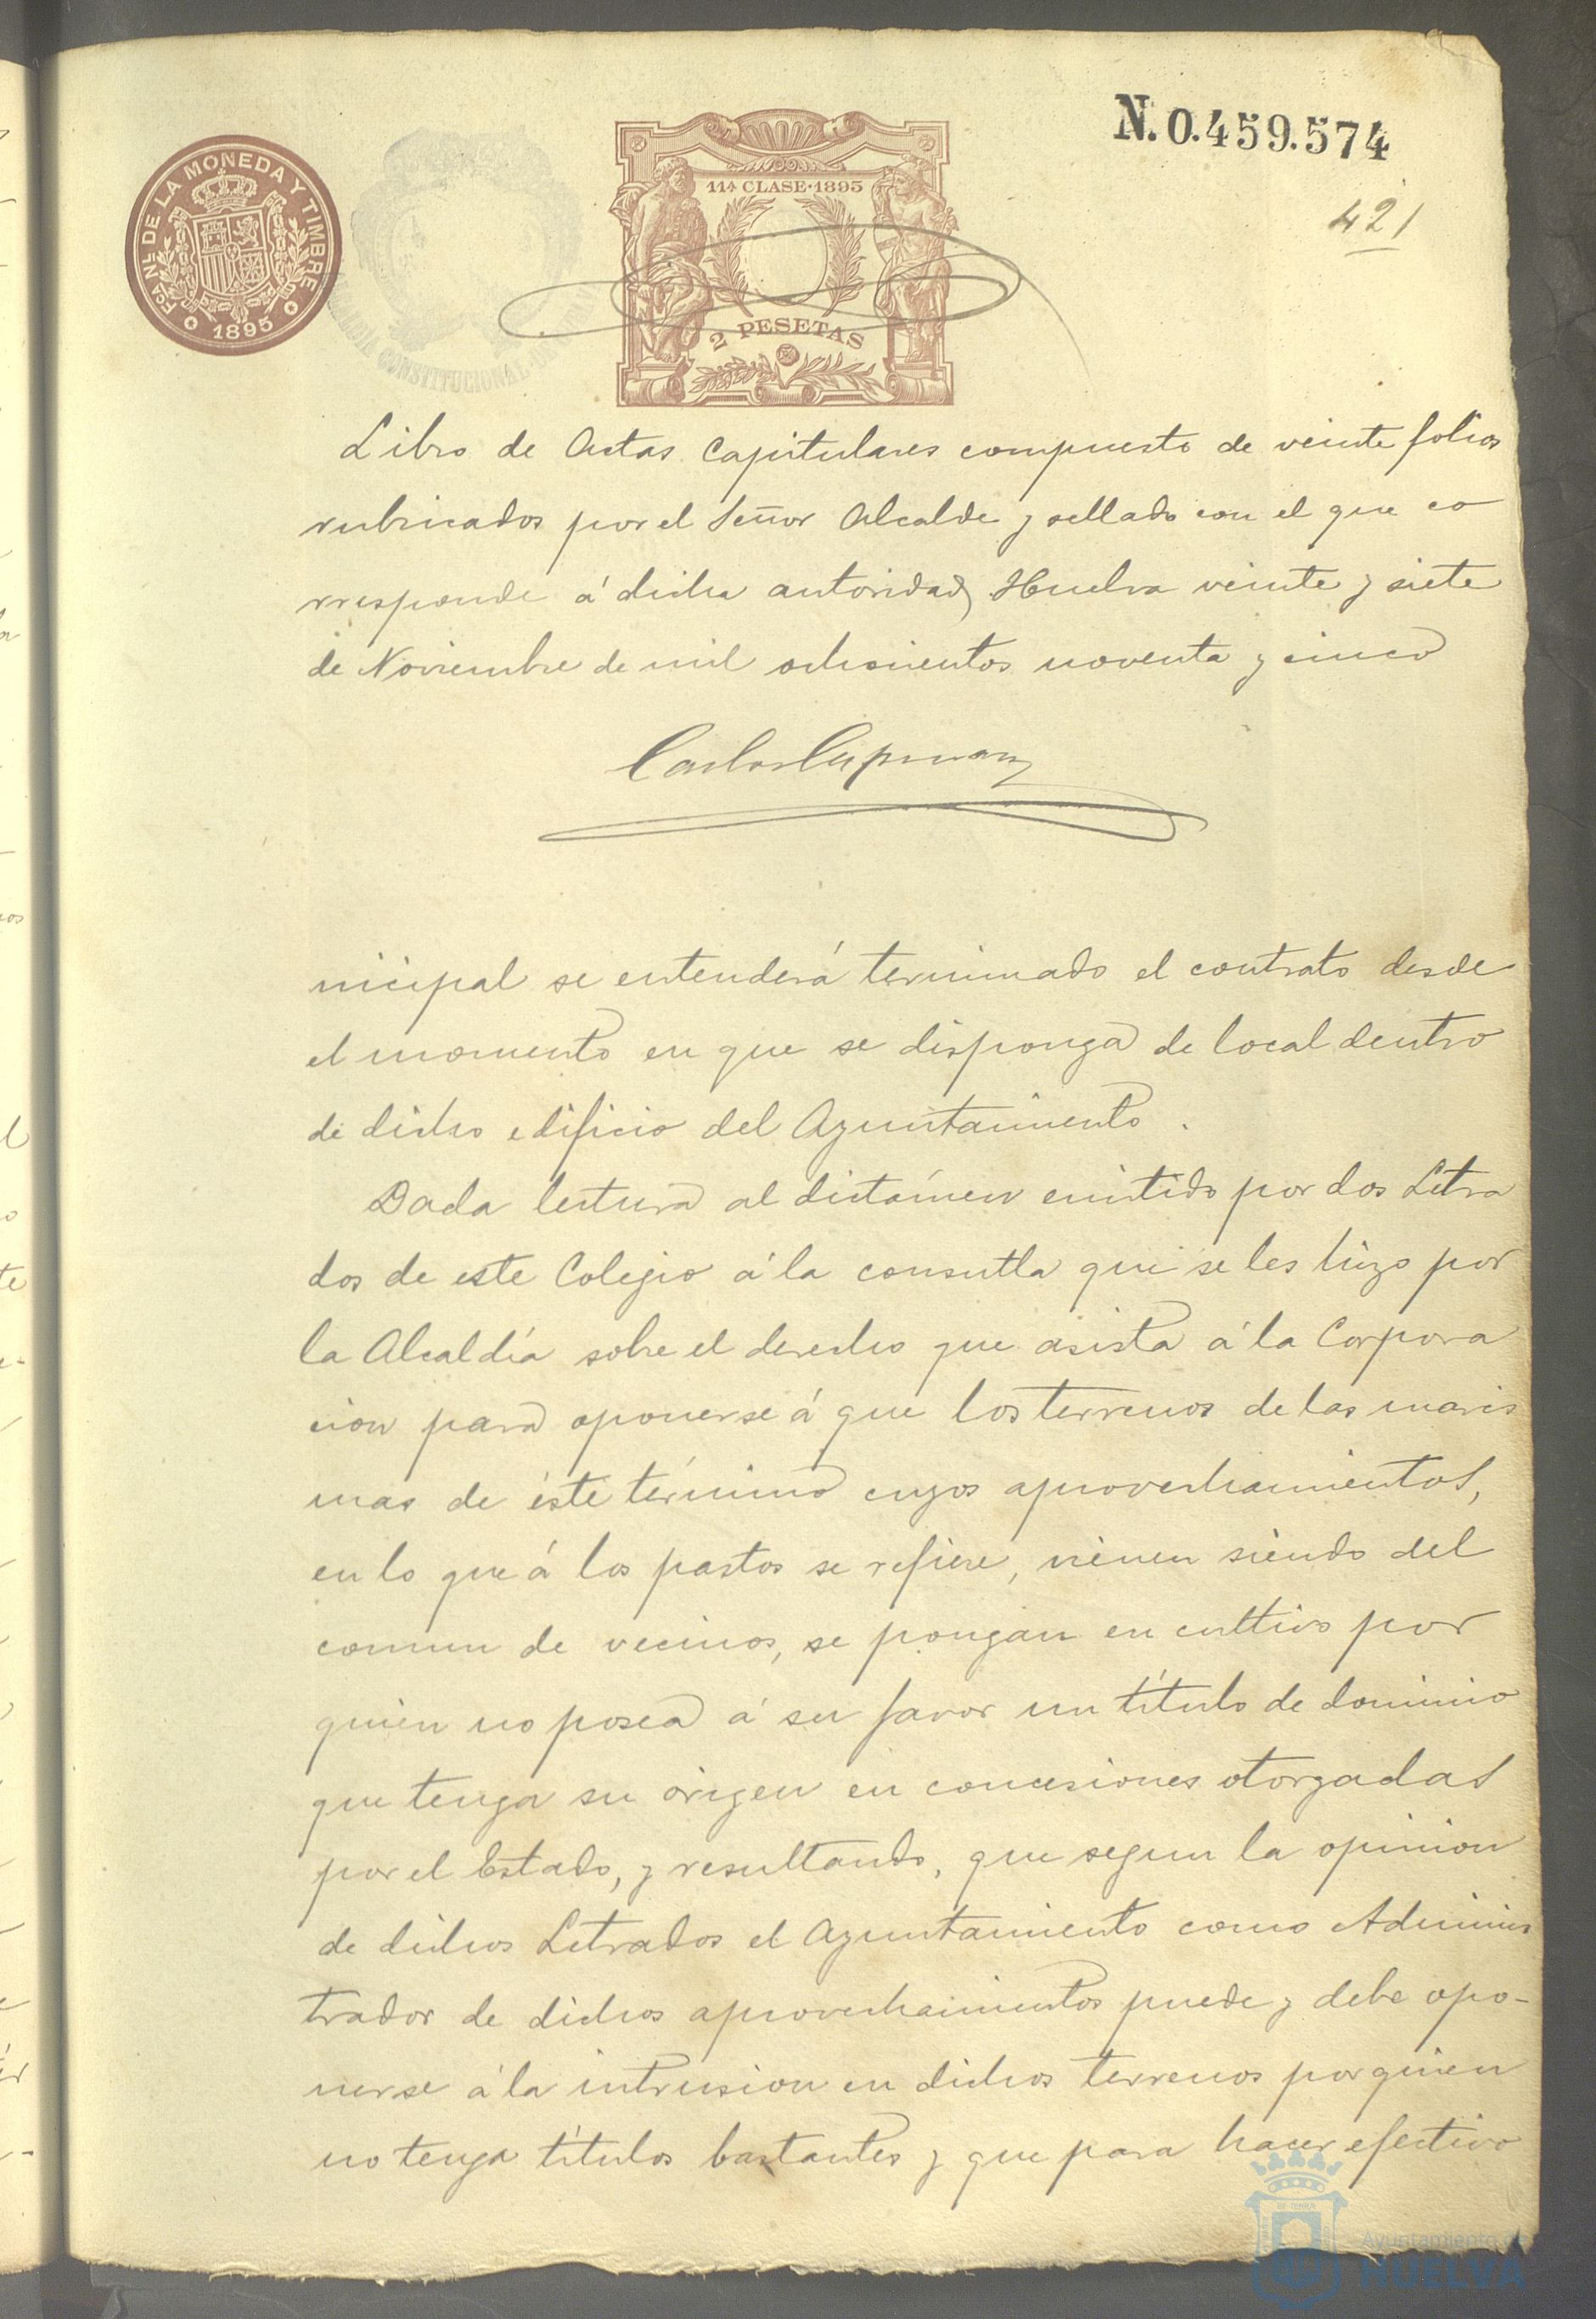 N. 0.459.574
FCA NL DE LA MONEDA Y TIMBRE
1895
CONSTITUCIONAL
11ª CLASE·1895
2 PESETAS
421
Libro de Actas Capitulares compuesto de veinte folios
rubricados por el Señor Alcalde y sellado con el que co
rresponde á dicha autoridad, Huelva veinte y siete
de Noviembre de mil ochocientos noventa y cinco
Carlos
nicipal se entenderá terminado el contrato desde
el momento en que se disponga de local dentro
de dicho edificio del Ayuntamiento.
Dada lectura al dictámen emitido por dos Letra
dos de este Colegio á la consulta que se les hizo por
la Alcaldía sobre el derecho que asista á la Corpora
cion para oponerse á que los terrenos de las maris
mas de éste término cuyos aprovechamientos,
en lo que á los pastos se refiere, vienen siendo del
comun de vecinos, se pongan en cultivo por
quien no posea á su favor un título de dominio
que tenga su origen en concesiones otorgadas
por el Estado, y resultando, que segun la opinion
de dichos Letrados el Ayuntamiento como Adminis
trador de dichos aprovechamientos puede y debe opo-
nerse á la intrusion en dichos terrenos por quien
no tenga títulos bastantes y que para hacer efectivo
Ayuntamiento de
HUELVA